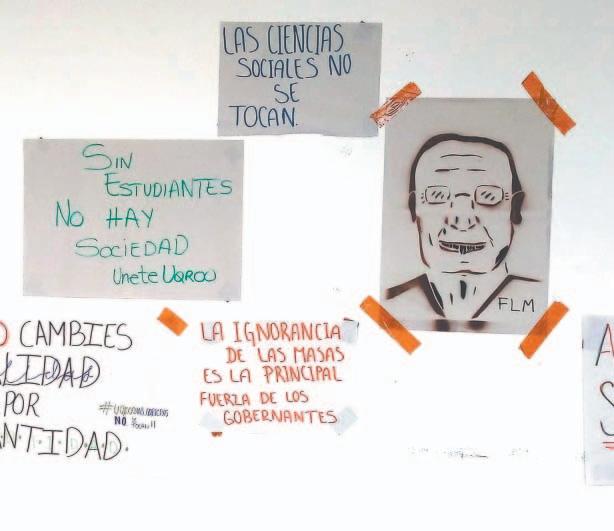 LAS CIENCIAS
SOCIALES NO
SE
TOCAN.
SIN
ESTUDIANTES
NO HAY
SOCIEDAD
Unete UQROO
FLM
O CAMBIES
ALIDAD
POR
NTIDAD.
NO
LA IGNORANCIA
DE LAS MASAS
ES LA PRINCIPAL
FUERZA DE LOS
GOBERNANTES
A
S